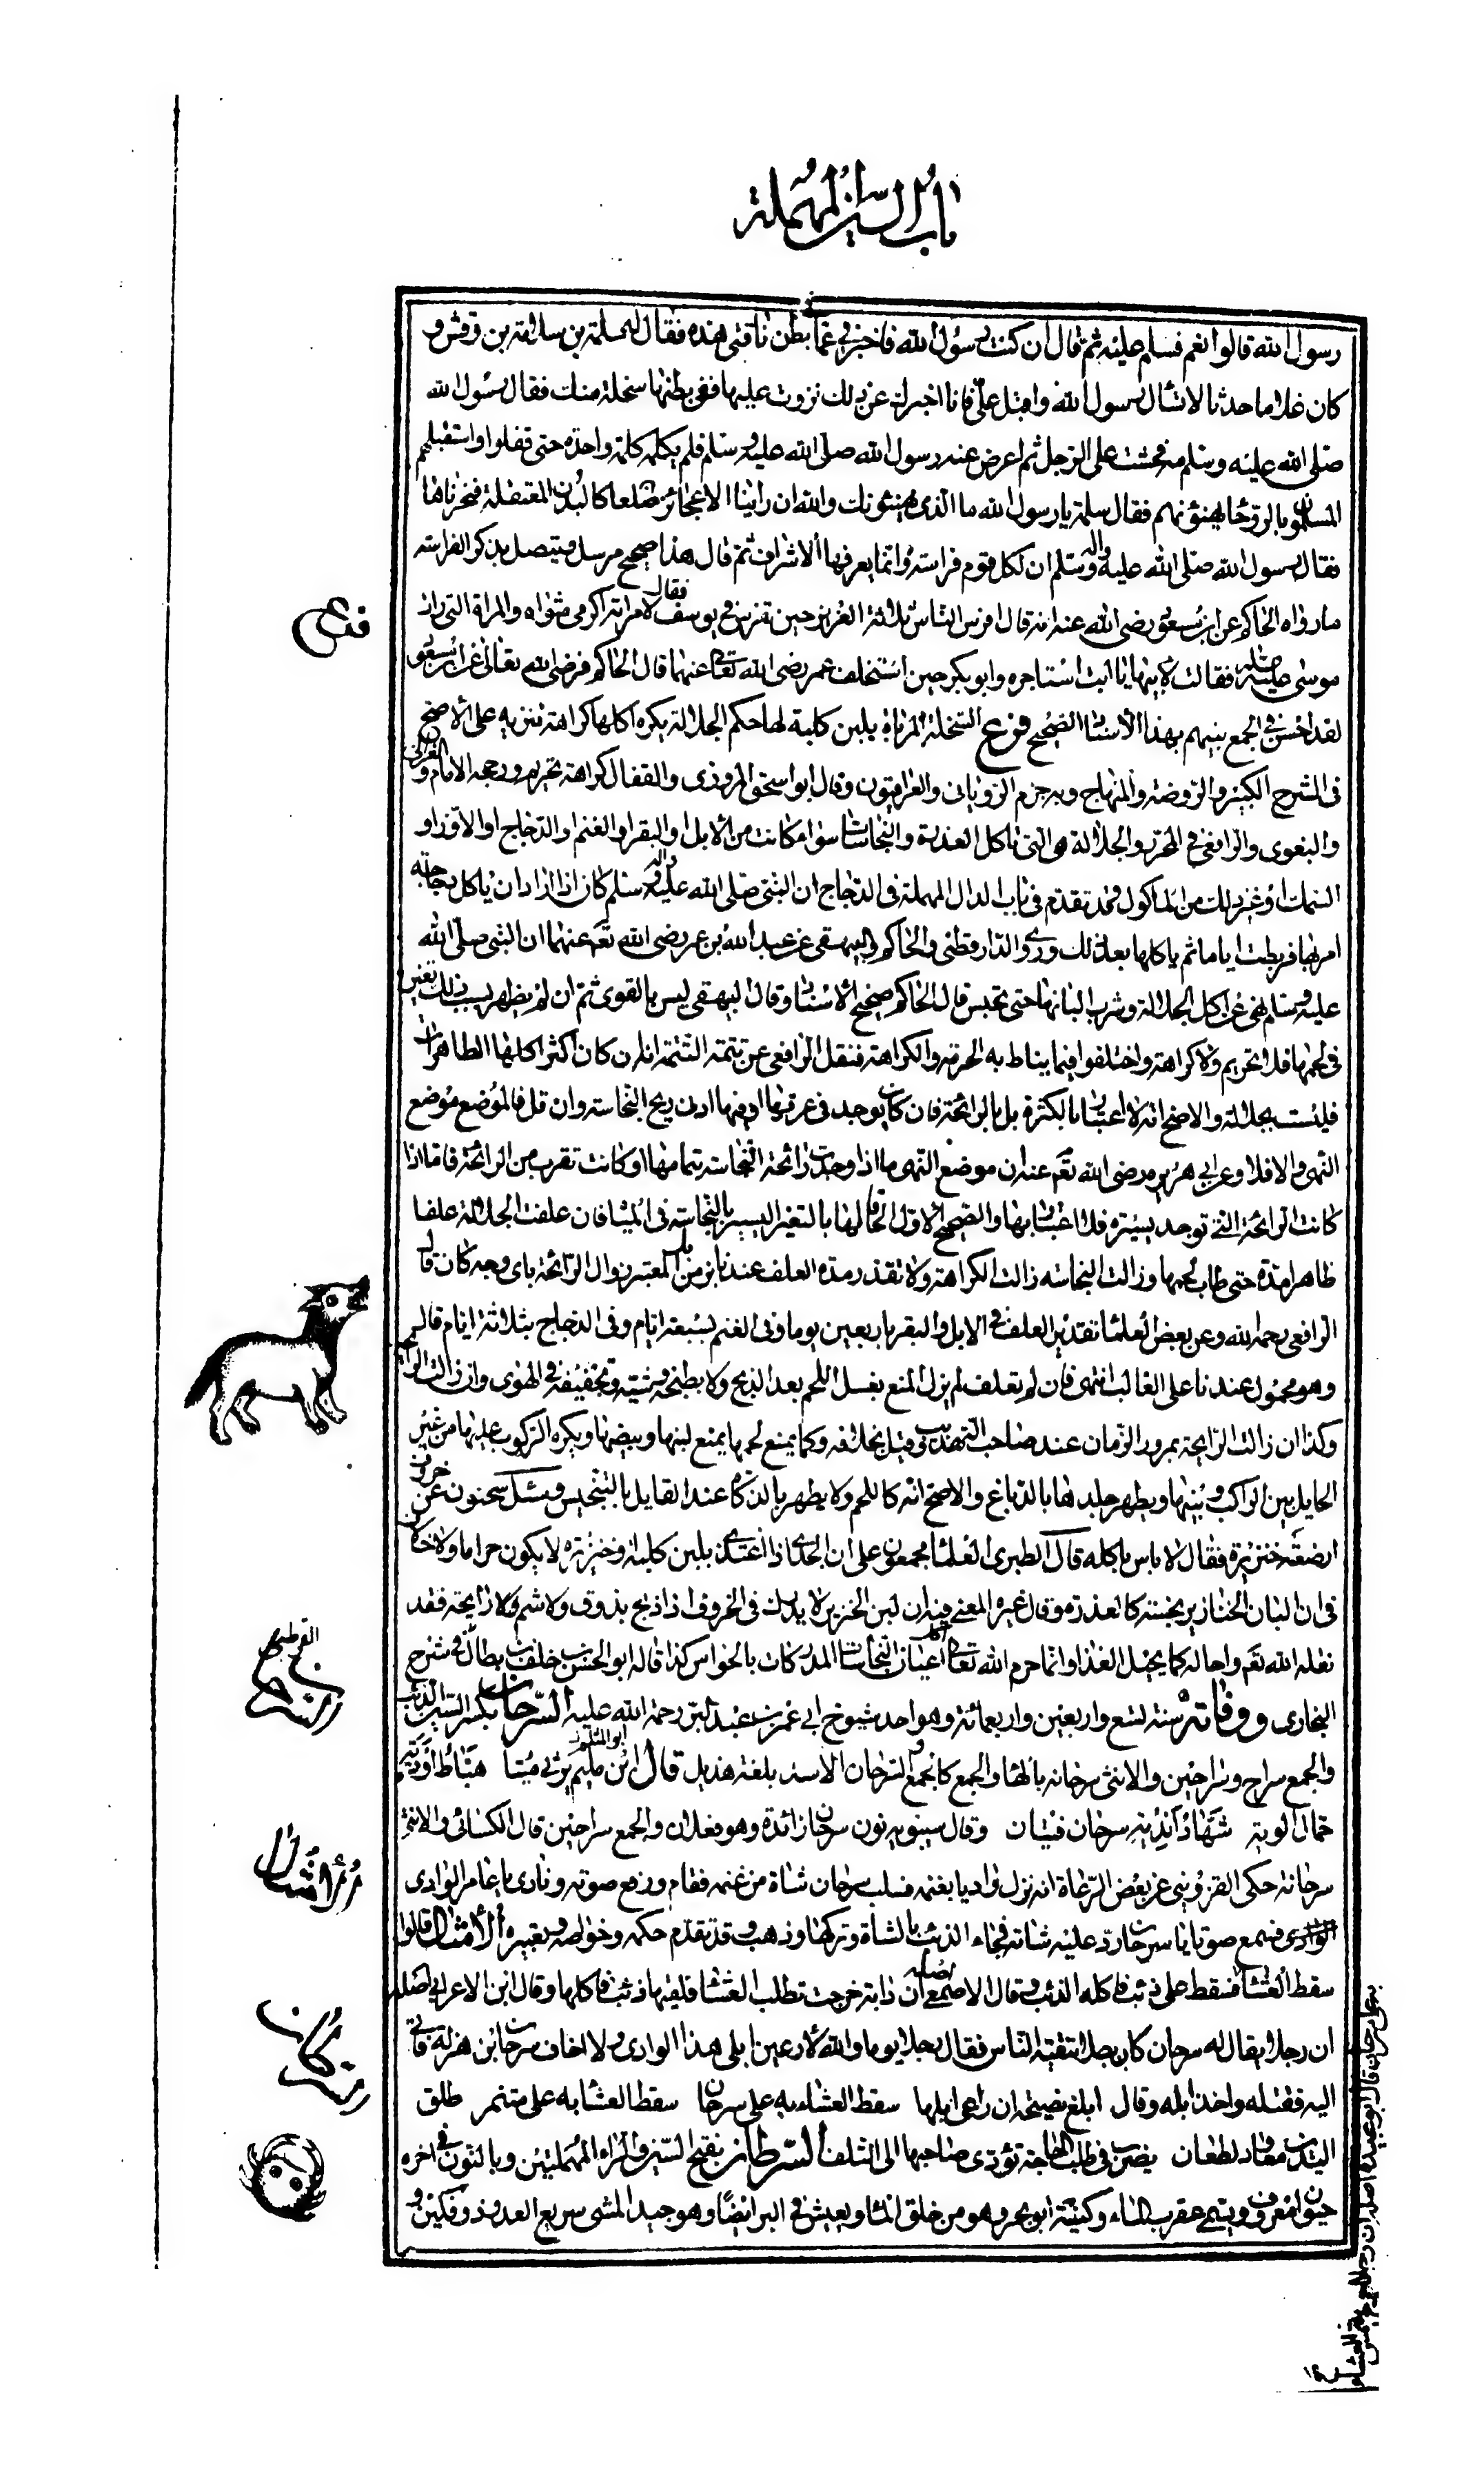 باب السين المهملة
رسول الله قالوا نعم فسلم عليه ثم قال ان كنت رسول الله فاخبرني عما بطن ناقتي هذه فقال له سلمة بن سلامة بن وقش و
كان غلاما حدثا لا تسأل رسول الله واقبل علي فانا اخبرك عن ذلك نزوت عليها ففي بطنها سخلة منك فقال رسول الله
صلى الله عليه وسلم مه فحشت على الرجل ثم اعرض عنه رسول الله صلى الله عليه وسلم فلم يكلمه كلمة واحدة حتى قفلوا واستقبلهم
المسلمون بالروحا يهنؤنهم فقال سلمة يا رسول الله ما الذي يهنئونك والله ان راينا الا عجائز ضلعا كالبدن المعتقلة فنحرناها
فقال رسول الله صلى الله عليه واله وسلم ان لكل قوم فراسة وانما يعرفها الاشراف ثم قال هذا صحيح مرسل ويتصل بذكر الفراسة
ما رواه الحاكم عن ابن مسعود رضي الله عنه انه قال افرس الناس ثلاثة العزيز حين تفرس في يوسف فقال لامراته اكرمي مثواه والمراة التي رات
موسى عليه السلام فقالت لابيها يا ابت استاجره وابو بكر حين استخلف عمر رضي الله تعالى عنهما قال الحاكم فرضي الله تعالى عن ابن مسعود
لقد احسن في الجمع بينهم بهذا الاسناد الصحيح فرع السخلة المرباة بلبن كلبة لها حكم الجلالة يكره اكلها كراهة تنزيه على الاصح
في الشرح الكبير والروضة والمنهاج وبه جزم الروياني والعراقيون وقال ابو اسحق المروزي والقفال كراهة تحريم ورجحه الامام والغزالي
والبغوي والرافعي في المحرر والجلالة هي التي تاكل العذرة والنجاسات سواء كانت من الابل او البقر او الغنم او الدجاج او الاوز او
السمك او غير ذلك من الماكول وقد تقدم في باب الدال المهملة في الدجاج ان النبي صلى الله عليه واله وسلم كان اذا اراد ان ياكل دجاجة
امر بها فربطت اياما ثم ياكلها بعد ذلك وروى الدارقطني والحاكم والبيهقي عن عبد الله بن عمر رضي الله تعم عنهما ان النبي صلى الله
عليه وسلم نهى عن اكل الجلالة وشرب البانها حتى تحبس قال الحاكم صحيح الاسناد وقال البيهقي ليس بالقوي ثم ان لم يظهر بسبب ذلك تغير
في لحمها فلا تحريم ولا كراهة واختلفوا فيما يناط به الحرمة والكراهة فنقل الرافعي عن تتمة التتمة انه ان كان اكثر اكلها الطاهرات
فليست بجلالة والاصح انه لا اعتبار بالكثرة بل بالرائحة فان كان يوجد في عرقها او فيها ادنى ريح النجاسة وان قل فالموضع موضع
النهي والا فلا وعن ابي هريرة رضي الله تعم عنه ان موضع النهي ما اذا وجدت رائحة النجاسة بتمامها او كانت تقرب من الرائحة فاما اذا
كانت الرائحة التي توجد يسيرة فلا اعتبار بها والصحيح الاول الحاقا لها بالتغير اليسير بالنجاسة في المياه فان علفت الجلالة علفا
طاهرا مدة حتى طاب لحمها وزالت النجاسة زالت الكراهة ولا تقدر مدة العلف عندنا بزمن بل المعتبر زوال الرائحة باي وجه كان قال
الرافعي رحمه الله وعن بعض العلماء تقدير العلف في الابل والبقر باربعين يوما وفي الغنم بسبعة ايام وفي الدجاج بثلاثة ايام قال
وهو محمول عندنا على الغالب انتهى فان لم تعلف لم يزل المنع بغسل اللحم بعد الذبح ولا بطبخه وشيه وتجفيفه في الهوى وان زالت الرائحة
وكذا ان زالت الرائحة بمرور الزمان عند صاحب التهذيب وقيل بخلافه وكما يمنع لحمها يمنع لبنها وبيضها ويكره الركوب عليها من غير
الحايل بين الراكب وبينها ويطهر جلدها بالدباغ والاصح انه كاللحم ولا يطهر بالذكاة عند القايل بالتنجيس وسئل سحنون عن خروف
ارضعته خنزيرة فقال لا باس باكله قال الطبري العلماء مجمعون على ان الجدي اذا اغتذى بلبن كلبة وخنزيرة لا يكون حراما ولا خلاف
في ان البان الخنازير نجسة كالعذرة وقال غيره المعنى فيه ان لبن الخنزير لا يدرك في الخروف اذا ذبح بذوق ولا شم ولا رايحة فقد
نقله الله تعم واحاله كما يحيل الغذاء وانما حرم الله تعالى اكل اعيان النجاسات المدركات بالحواس كذا قاله ابو الحسن بن خلف بن بطال في شرح
البخاري ووفاته سنة تسع واربعين واربعمائة وهو احد شيوخ ابي عمر بن عبد البر رحمة الله عليه السرحان بكسر السين الذئب
والجمع سراح وسراحين والانثى سرحانة بالهاء والجمع كالجمع والسرحان الاسد بلغة هذيل قال ابو المثلم يرثي ميتا هباط اودية
حمال الوية شهاد اندية سرحان فتيان وقال سيبويه نون سرحان زائدة وهو فعلان والجمع سراحين قال الكسائي والانثى
سرحانة حكى القزويني عن بعض الرعاة انه نزل واديا بغنمه فسلب سرحان شاة من غنمه فقام ورفع صوته ونادى يا عامر الوادي
فسمع صوتا يا سرحان رد عليه شاته فجاء الذئب بالشاة وتركها وذهب وقد تقدم حكمه وخواصه وتعبيره الامثال قالوا
سقط العشا به على سرحان قال ابو عبيدة اصله ان رجلا خرج يلتمس العشا فسقط على ذئب فاكله الذئب وقال الاصمعي اصله ان دابة خرجت تطلب العشا فلقيها ذئب فاكلها وقال ابن الاعرابي اصله
ان رجلا يقال له سرحان كان بطلا تتقيه الناس فقال رجل يوما والله لارعين ابلي هذا الوادي ولا اخاف سرحان بن هزلة فاتى
اليه فقتله واخذ ابله وقال ابلغ نصيحة ان راعي ابلها سقط العشاء به على سرحان سقط العشا به على متنمر طلق
اليدين معاود لطعان يضرب في طلب الحاجة تؤدي صاحبها الى التلف السرطان بفتح السين والراء المهملتين وبالنون في اخره
حيوان معروف ويسمى عقرب الماء وكنيته ابو بحر وهو من خلق الماء ويعيش في البر ايضا وهو جيد المشي سريع العدو ذو فكين و
فرع
السرحان
الامثال
السرطان